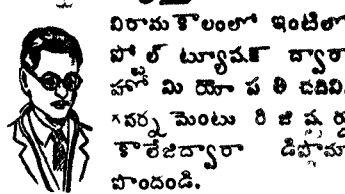 విరామ కాలంలో ఇంటిలో
పోస్టల్ ట్యూషన్ ద్వారా
హోమియోపతి చదివి.
గవర్న మెంటు రిజిష్టర్డు
కాలేజిద్వారా డిప్లొమా
పొందండి.